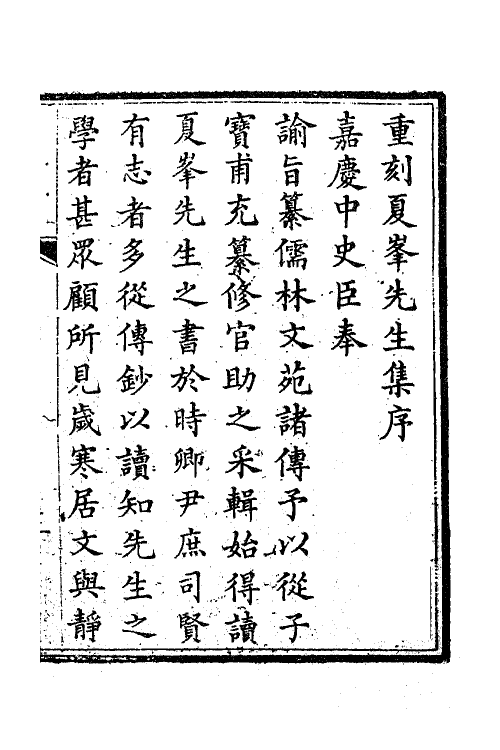 重刻夏峯先生集序
嘉慶中史臣奉
諭旨纂儒林文苑諸傳予以從子
寶甫充纂修官助之采輯始得讀
夏峯先生之書於時卿尹庶司賢
有志者多從傳鈔以讀知先生之
學者甚眾顧所見歲寒居文與靜